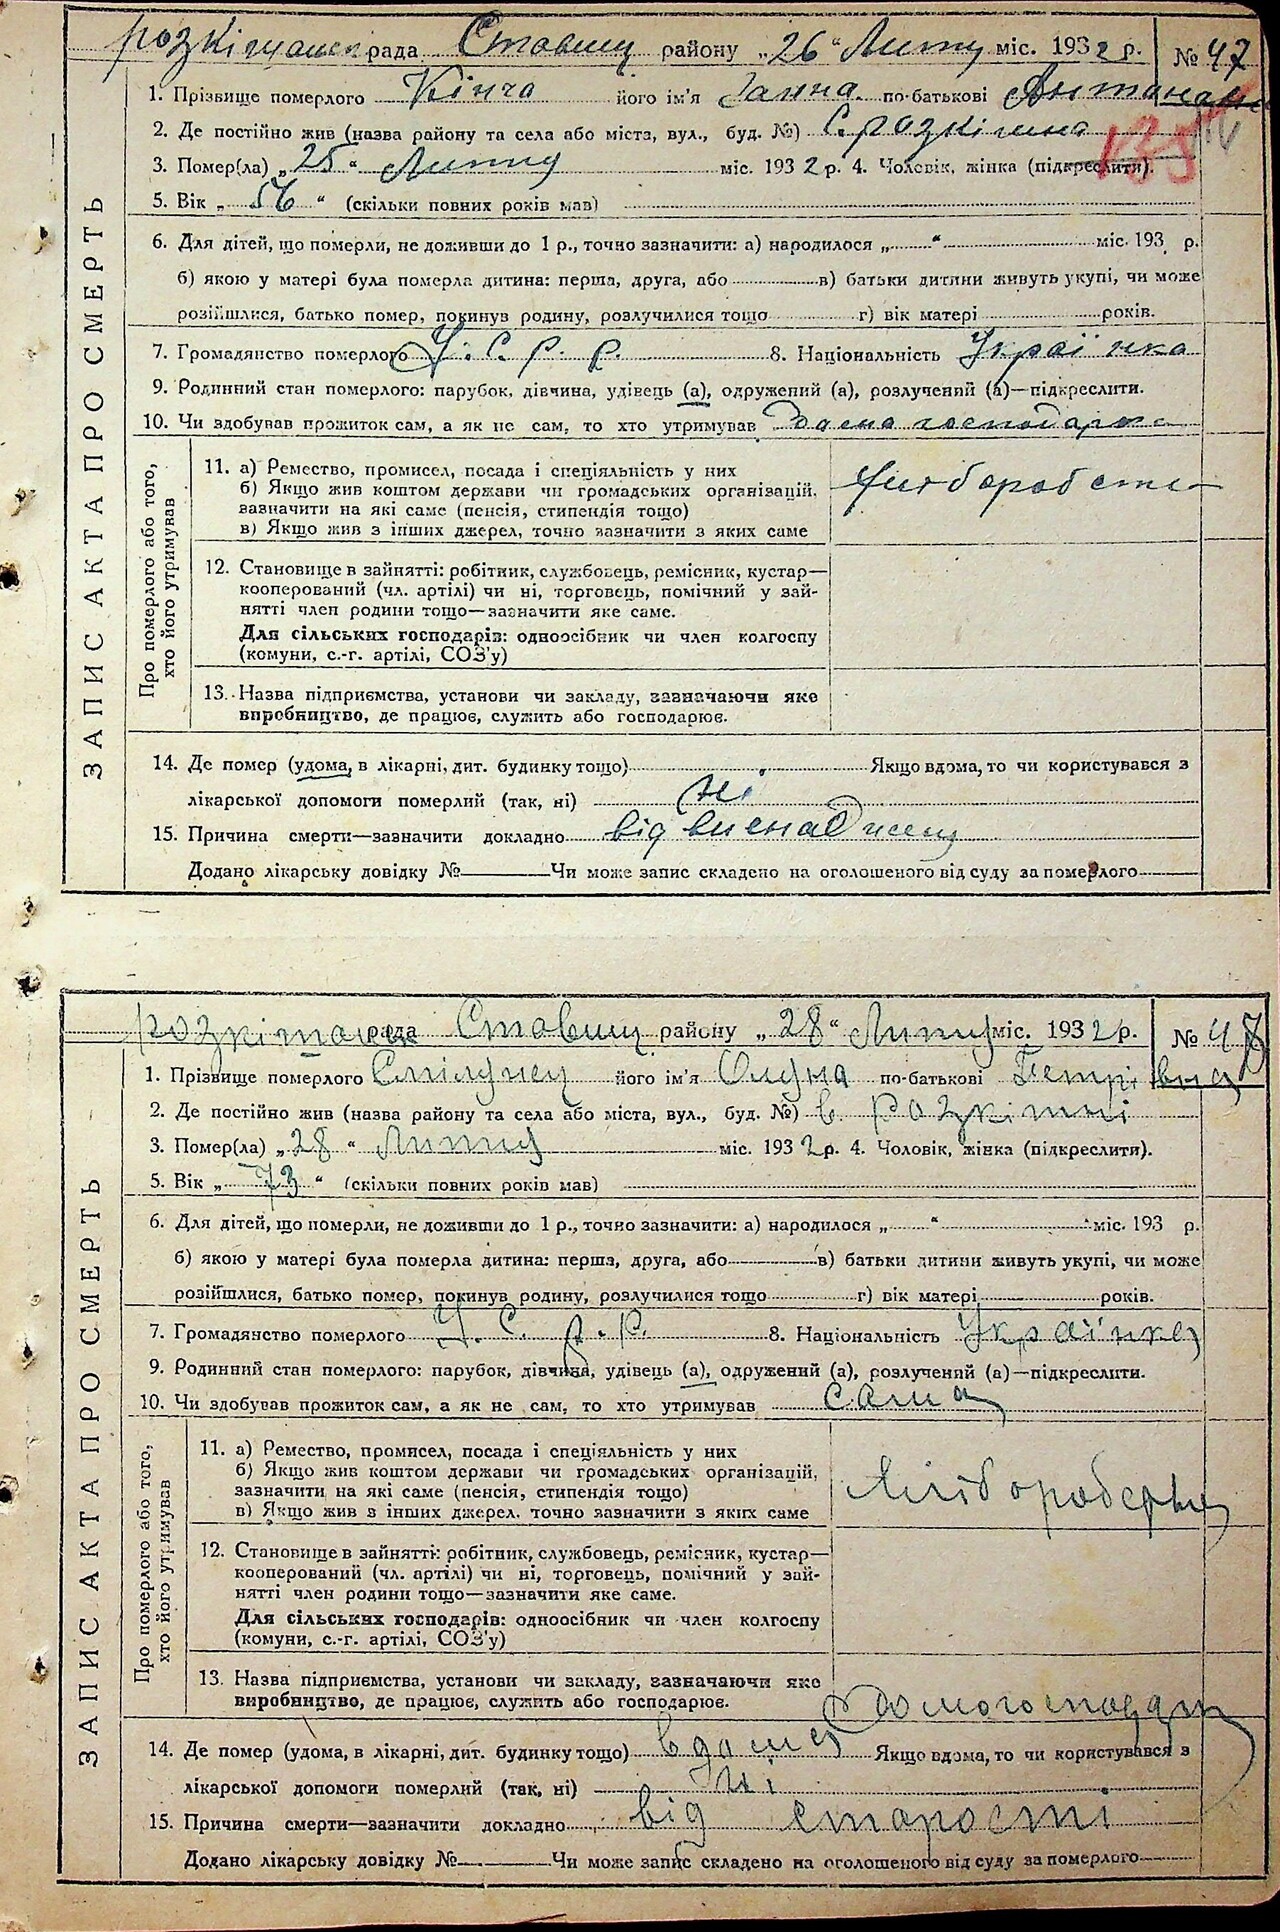 рада Ставищ району „26“ Лютц міс. 1932 р. № 47
1. Прізвище померлого Кінча його ім'я Ганна по-батькові
2. Де постійно жив (назва району та села або міста, вул., буд. №) с. розкішна
3. Помер(ла) „25“ Лютц міс. 1932 р. 4. Чоловік, жінка (підкреслити).
5. Вік „56“ (скільки повних років мав)
6. Для дітей, що померли, не доживши до 1 р., точно зазначити: а) народилося „ “ міс. 193 р.
б) якою у матері була померла дитина: перша, друга, або в) батьки дитини живуть укупі, чи може
розійшлися, батько помер, покинув родину, розлучилися тощо г) вік матері років.
7. Громадянство померлого У. С. Р. Р. 8. Національність Українка
9. Родинний стан померлого: парубок, дівчина, удівець (а), одружений (а), розлучений (а)—підкреслити.
10. Чи здобував прожиток сам, а як не сам, то хто утримував
ЗАПИС АКТА ПРО СМЕРТЬ
Про померлого або того,
хто його утримував
11. а) Ремество, промисел, посада і спеціяльність у них
б) Якщо жив коштом держави чи громадських організацій,
зазначити на які саме (пенсія, стипендія тощо)
в) Якщо жив з інших джерел, точно зазначити з яких саме
12. Становище в зайнятті: робітник, службовець, ремісник, кустар—
кооперований (чл. артілі) чи ні, торговець, помічний у зай-
нятті член родини тощо—зазначити яке саме.
Для сільських господарів: одноосібник чи член колгоспу
(комуни, с.-г. артілі, СОЗ'у)
13. Назва підприємства, установи чи закладу, зазначаючи яке
виробництво, де працює, служить або господарює.
14. Де помер (удома, в лікарні, дит. будинку тощо) Якщо вдома, то чи користувався з
лікарської допомоги померлий (так, ні) ні
15. Причина смерти—зазначити докладно від
Додано лікарську довідку № Чи може запис складено на оголошеного від суду за померлого
рада Ставищ району „28“ Лютц міс. 1932 р. № 48
1. Прізвище померлого його ім'я по-батькові Петрівна
2. Де постійно жив (назва району та села або міста, вул., буд. №) в розкішні
3. Помер(ла) „28“ Лютц міс. 1932 р. 4. Чоловік, жінка (підкреслити).
5. Вік „73“ (скільки повних років мав)
6. Для дітей, що померли, не доживши до 1 р., точно зазначити: а) народилося „ “ міс. 193 р.
б) якою у матері була померла дитина: перша, друга, або в) батьки дитини живуть укупі, чи може
розійшлися, батько помер, покинув родину, розлучилися тощо г) вік матері років.
7. Громадянство померлого У. С. Р. Р. 8. Національність Українка
9. Родинний стан померлого: парубок, дівчина, удівець (а), одружений (а), розлучений (а)—підкреслити.
10. Чи здобував прожиток сам, а як не сам, то хто утримував сама
ЗАПИС АКТА ПРО СМЕРТЬ
Про померлого або того,
хто його утримував
11. а) Ремество, промисел, посада і спеціяльність у них
б) Якщо жив коштом держави чи громадських організацій,
зазначити на які саме (пенсія, стипендія тощо)
в) Якщо жив з інших джерел, точно зазначити з яких саме
12. Становище в зайнятті: робітник, службовець, ремісник, кустар—
кооперований (чл. артілі) чи ні, торговець, помічний у зай-
нятті член родини тощо—зазначити яке саме.
Для сільських господарів: одноосібник чи член колгоспу
(комуни, с.-г. артілі, СОЗ'у)
13. Назва підприємства, установи чи закладу, зазначаючи яке
виробництво, де працює, служить або господарює.
14. Де помер (удома, в лікарні, дит. будинку тощо) вдома Якщо вдома, то чи користувався з
лікарської допомоги померлий (так, ні) Ні
15. Причина смерти—зазначити докладно від старості
Додано лікарську довідку № Чи може запис складено на оголошеного від суду за померлого